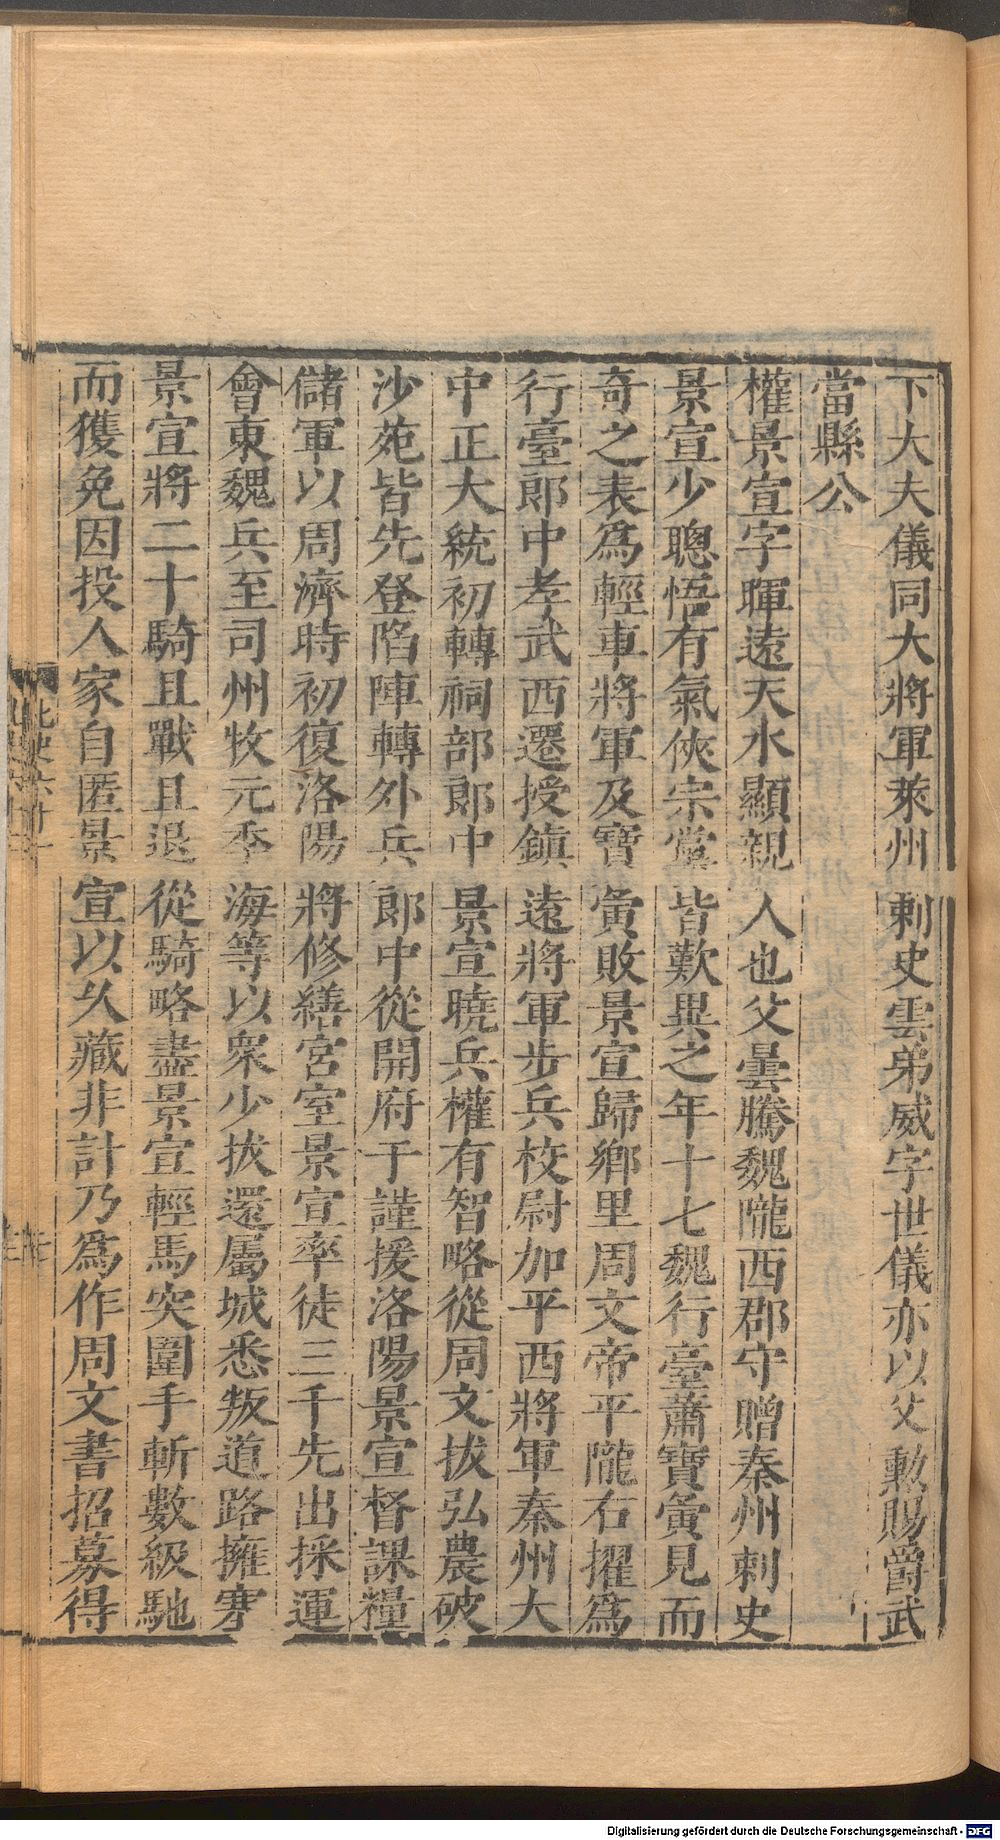 下大夫儀同大將軍萊州刺史雲弟威字世儀亦以父勲賜爵武
當縣公
權景宣字暉遠天水顯親人也父曇騰魏隴西郡守贈秦州刺史
景宣少聰悟有氣俠宗黨皆歎異之年十七魏行臺蕭寶夤見而
奇之表爲輕車將軍及寶夤敗景宣歸鄉里周文帝平隴右擢爲
行臺郎中孝武西遷授鎮遠將軍步兵校尉加平西將軍秦州大
中正大統初轉祠部郎中景宣曉兵權有智略從周文拔弘農破
沙苑皆先登陷陣轉外兵郎中從開府于謹援洛陽景宣督課糧
儲軍以周濟時初復洛陽將修繕宮室景宣率徒三千先出採運
會東魏兵至司州牧元季海等以衆少拔還屬城悉叛道路擁塞
景宣將二十騎且戰且退從騎略盡景宣輕馬突圍手斬數級馳
而獲免因投人家自匿景宣以久藏非計乃爲作周文書招募得
北史六十一
Digitalisierung gefördert durch die Deutsche Forschungsgemeinschaft - DFG